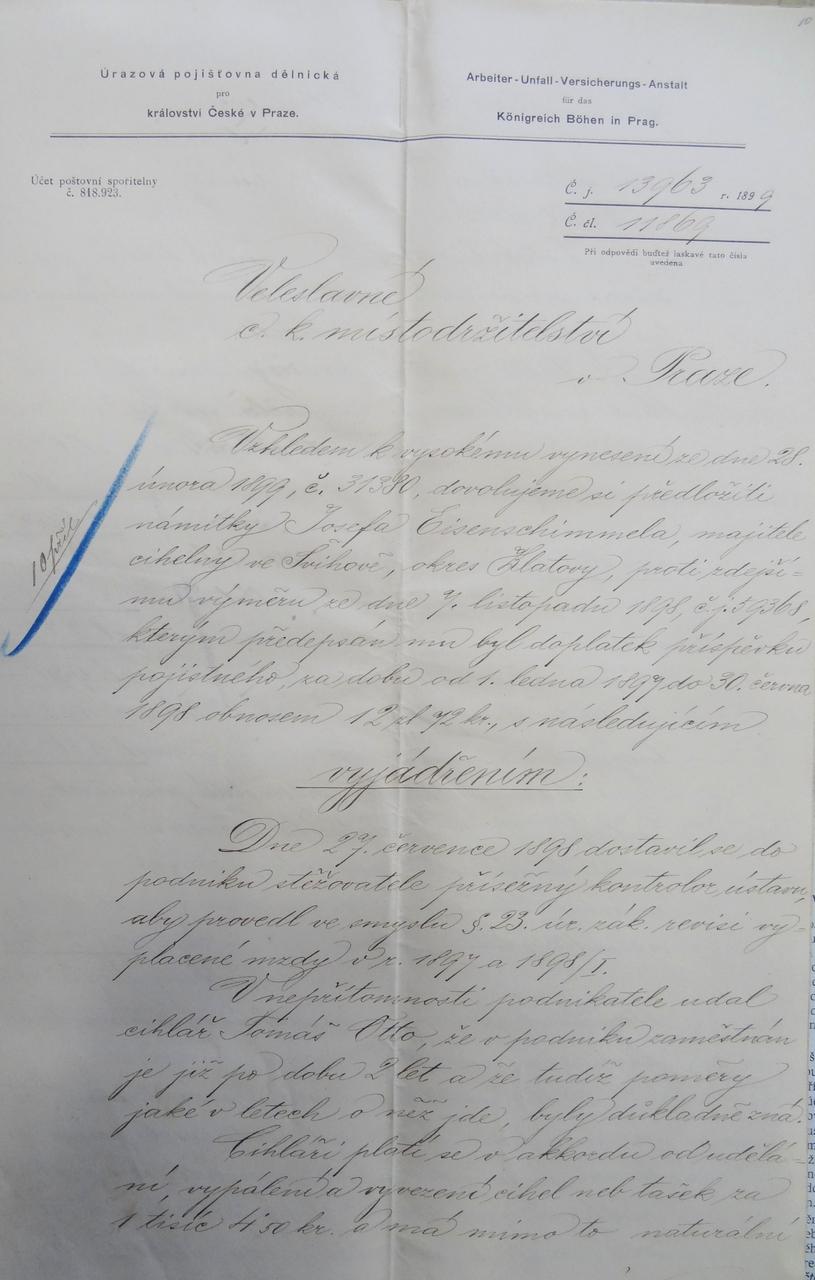 10
Úrazová pojišťovna dělnická
pro
království České v Praze.
Arbeiter-Unfall-Versicherungs-Anstalt
für das
Königreich Böhen in Prag.
Účet poštovní spořitelny
č. 818.923.
Č. j. 13963 r. 1899
Č. čl. 11869
Při odpovědi buďtež laskavě tato čísla
uvedena
Veleslavné
c. k. místodržitelství
v Praze.
10 příl
Vzhledem k vysokému vynesení ze dne 28.
února 1899, č. 31390, dovolujeme si předložiti
námitky Josefa Eisenschimmela, majitele
cihelny ve Švihově, okres Klatovy, proti zdejší-
mu výměru ze dne 7. listopadu 1898, č. j. 59368,
kterým předepsán mu byl doplatek příspěvku
pojistného, za dobu od 1. ledna 1897 do 30. června
1898 obnosem 12 zl 72 kr., s následujícím
vyjádřením:
Dne 27. července 1898 dostavil se do
podniku stěžovatele přísežný kontrolor ústavu,
aby provedl ve smyslu §. 23. úr. zák. revisi vy-
placené mzdy v r. 1897 a 1898/I.
V nepřítomnosti podnikatele udal
cihlář Tomáš Otto, že v podniku zaměstnán
je již po dobu 2 let a že tudíž poměry
jaké v letech o něž jde, byly důkladně zná.
Cihláři platí se v akkordu od uděla-
ní, vypálení a vyvezení cihel neb tašek za
1 tisíc 4·50 kr. a má mimo to naturální